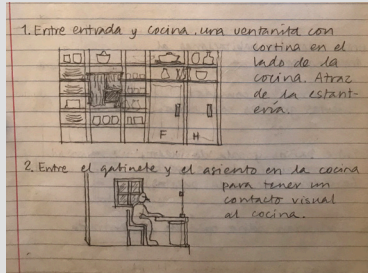 1. Entre entrada y cocina, una ventanita con
cortina en el
lado de la
cocina. Atraz
de la estant-
ería.
F H
2. Entre el gabinete y el asiento en la cocina
para tener un
contacto visual
al cocina.